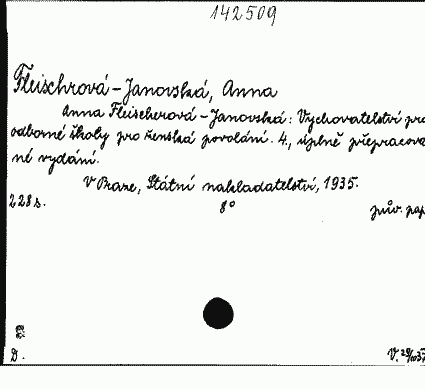 142509
Fleischrová-Janovská, Anna
Anna Fleischerová-Janovská: Vychovatelství pro
odborné školy pro ženská povolání. 4., úplně přepracova-
né vydání.
V Praze, Státní nakladatelství, 1935.
228 s. 8° pův. pap
D. V.